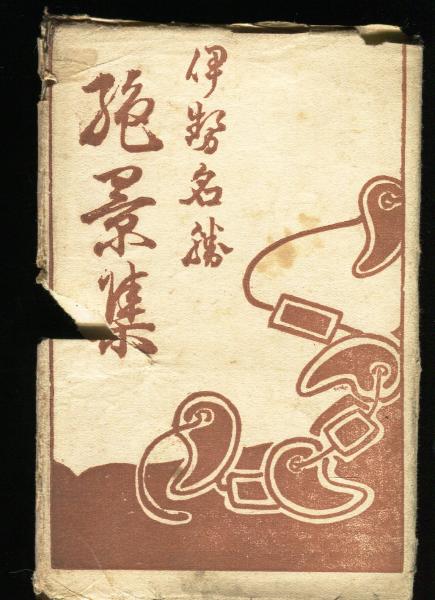 伊勢名勝
絶景集